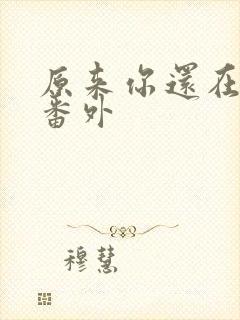 原来你還在
番外
穆慧